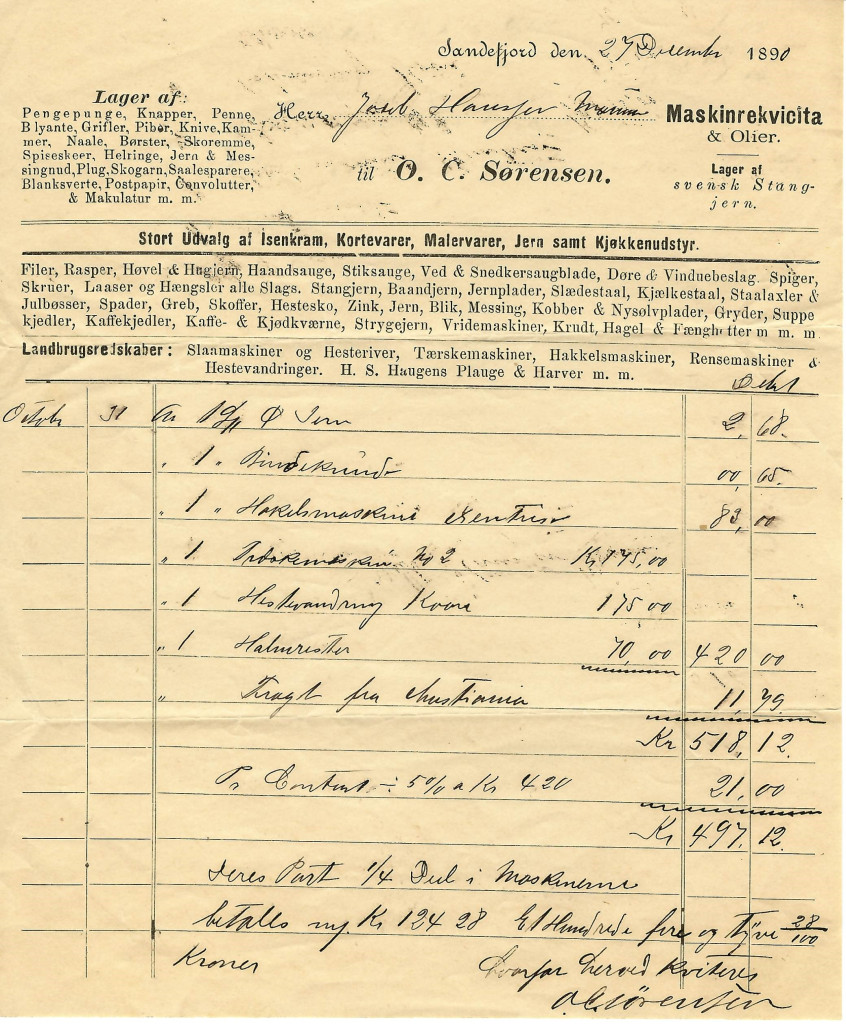 Sandefjord den 27 December 1890
Lager af:
Pengepunge, Knapper, Penne,
Blyante, Grifler, Piber, Knive, Kam-
mer, Naale, Børster, Skoremme,
Spiseskeer, Helringe, Jern & Mes-
singnud, Plug, Skogarn, Saalesparere,
Blanksverte, Postpapir, Convolutter,
& Makulatur m. m.
Herr Hansen
til O. C. Sørensen.
Maskinrekvicita
& Olier.
Lager af
svensk Stang-
jern.
Stort Udvalg af Isenkram, Kortevarer, Malervarer, Jern samt Kjøkkenudstyr.
Filer, Rasper, Høvel & Hugjern, Haandsauge, Stiksauge, Ved & Snedkersaugblade, Døre & Vinduebeslag. Spiger,
Skruer, Laaser og Hængsler alle Slags. Stangjern, Baandjern, Jernplader, Slædestaal, Kjælkestaal, Staalaxler &
Julbøsser, Spader, Greb, Skoffer, Hestesko, Zink, Jern, Blik, Messing, Kobber & Nysølvplader, Gryder, Suppe
kjedler, Kaffekjedler, Kaffe- & Kjødkværne, Strygejern, Vridemaskiner, Krudt, Hagel & Fænghetter m m. m
Landbrugsredskaber: Slaamaskiner og Hesteriver, Tærskemaskiner, Hakkelsmaskiner, Rensemaskiner &
Hestevandringer. H. S. Haugens Plauge & Harver m. m.
Debet
October 31 An Jern 2, 68.
" 1 " 00, 65.
" 1 " Hakelsmaskine 83, 00
" 1 No 2 Kr 175,00
" 1 Hestevandring 175 00
" 1 Halmrister 70, 00 420 00
" Fragt fra Christiania 11, 79.
Kr 518, 12.
Pr Contant ÷ 5% a Kr 420 21, 00
Kr 497, 12.
Deres Part 1/4 Del i Maskinerne
betales m. Kr 124 28 Et Hundrede fire og tyve 28/100
Kroner hvorfor herved kviteres
O. C. Sørensen